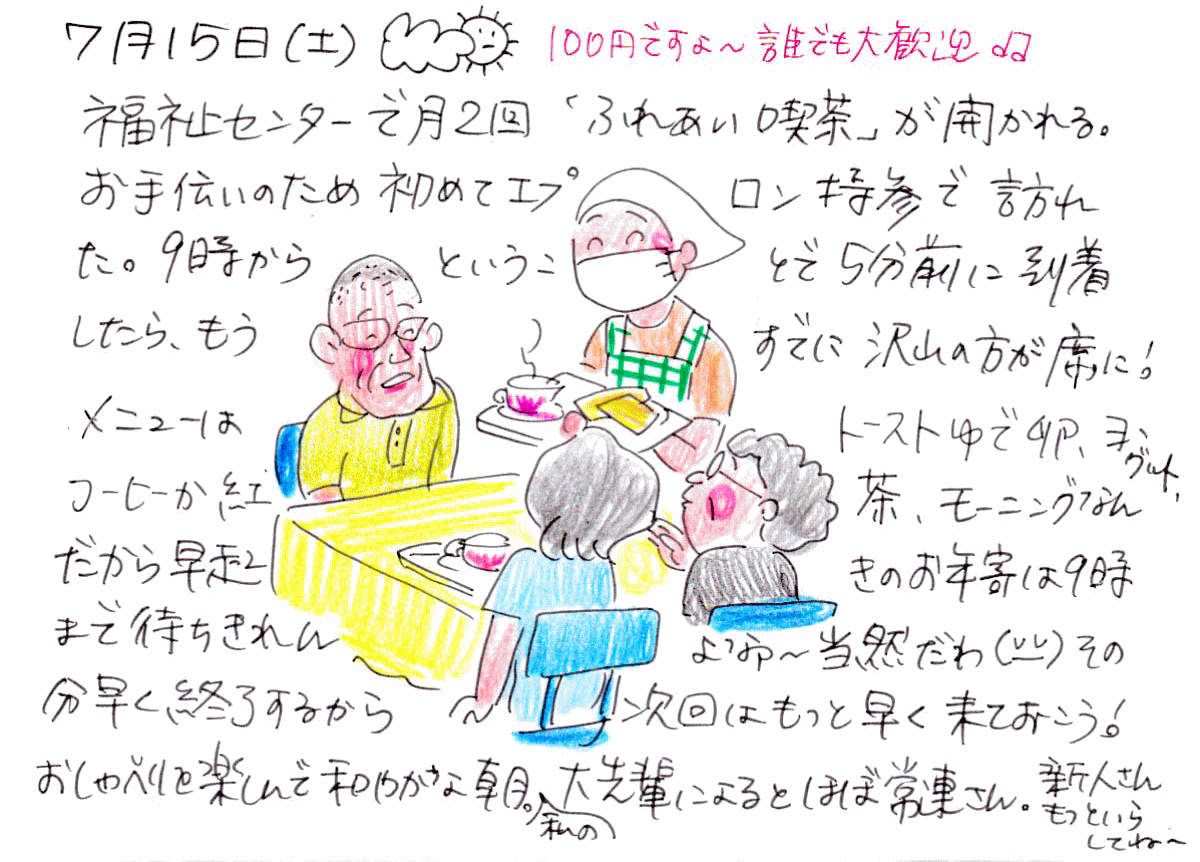 7月15日(土)
100円ですよ~誰でも大歓迎♫
福祉センターで月2回「ふれあい喫茶」が開かれる。
お手伝いのため初めてエプロン持参で訪れ
た。9時からということで5分前に到着
したら、もうすでに沢山の方が席に!
メニューはトーストゆで卯、ヨーグルト、
コーヒーか紅茶、モーニングなん
だから早起きのお年寄は9時
まで待ちきれんよつ~当然だわ(ー)その
分早く終了するから次回はもっと早く来ておこう!
おしゃべりを楽しんで和やかな朝。私の大先輩によるとほぼ常連さん。新人さん
もっといら
してね~